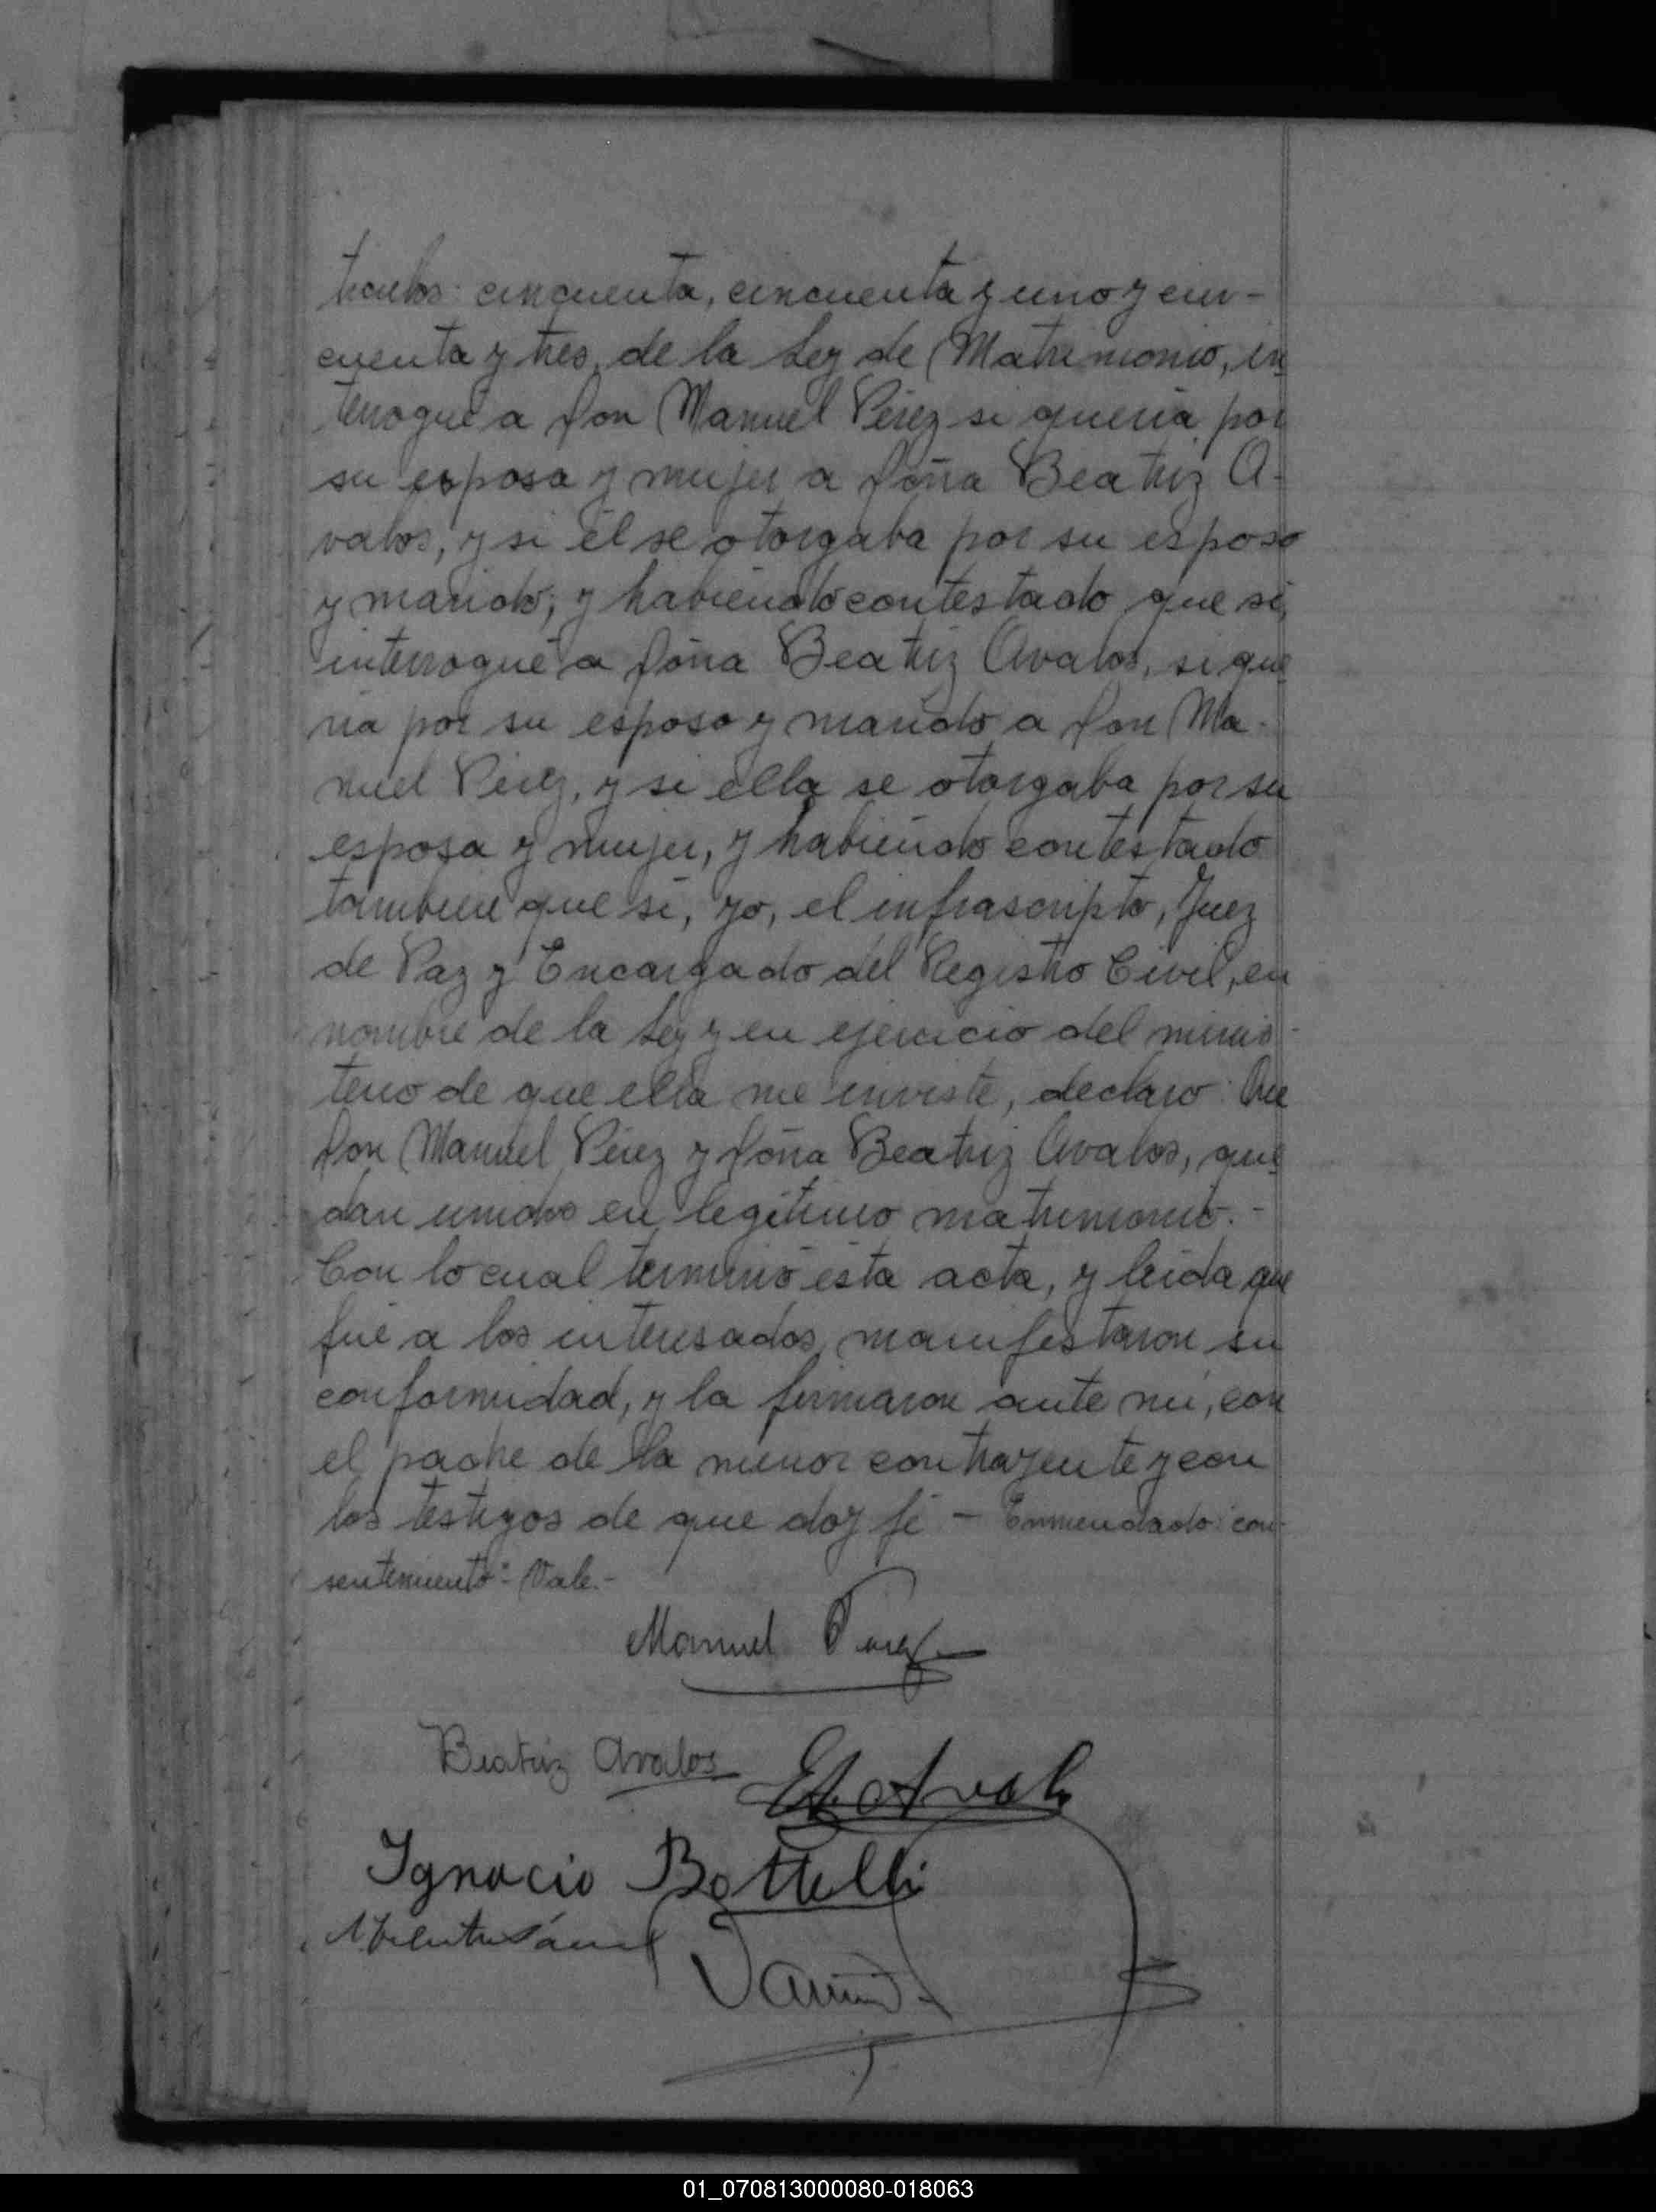 tículos cincuenta, cincuenta y uno y cin-
cuenta y tres, de la Ley de Matrimonio, in
terrogué a Don Manuel Pérez si quería por
su esposa y mujer a Doña Beatriz A-
valos, y si él se otorgaba por su esposo
y marido; y habiendo contestado que sí,
interrogué a Doña Beatriz Avalos, si que
ría por su esposo y marido a Don Ma-
nuel Pérez, y si ella se otorgaba por su
esposa y mujer, y habiendo contestado
también que sí, yo, el infrascripto, Juez
de Paz y Encargado del Registro Civil, en
nombre de la Ley y en ejercicio del minis-
terio de que ella me inviste, declaro: Que
Don Manuel Pérez y Doña Beatriz Avalos, que
dan unidos en legítimo matrimonio.-
Con lo cual terminó esta acta, y leída que
fué a los interesados, manifestaron su
conformidad, y la firmaron ante mí, con
el padre de la menor contrayente y con
los testigos de que doy fé - Enmendado: con-
sentimiento: Vale.-
Manuel Perez
Beatriz Avalos
Ignacio Bottelli
01_070813000080-018063